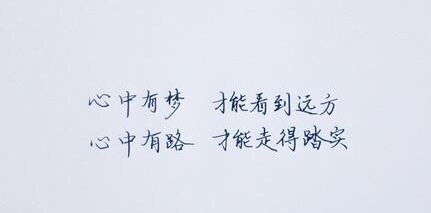 心中有梦 才能看到远方
心中有路 才能走得踏实